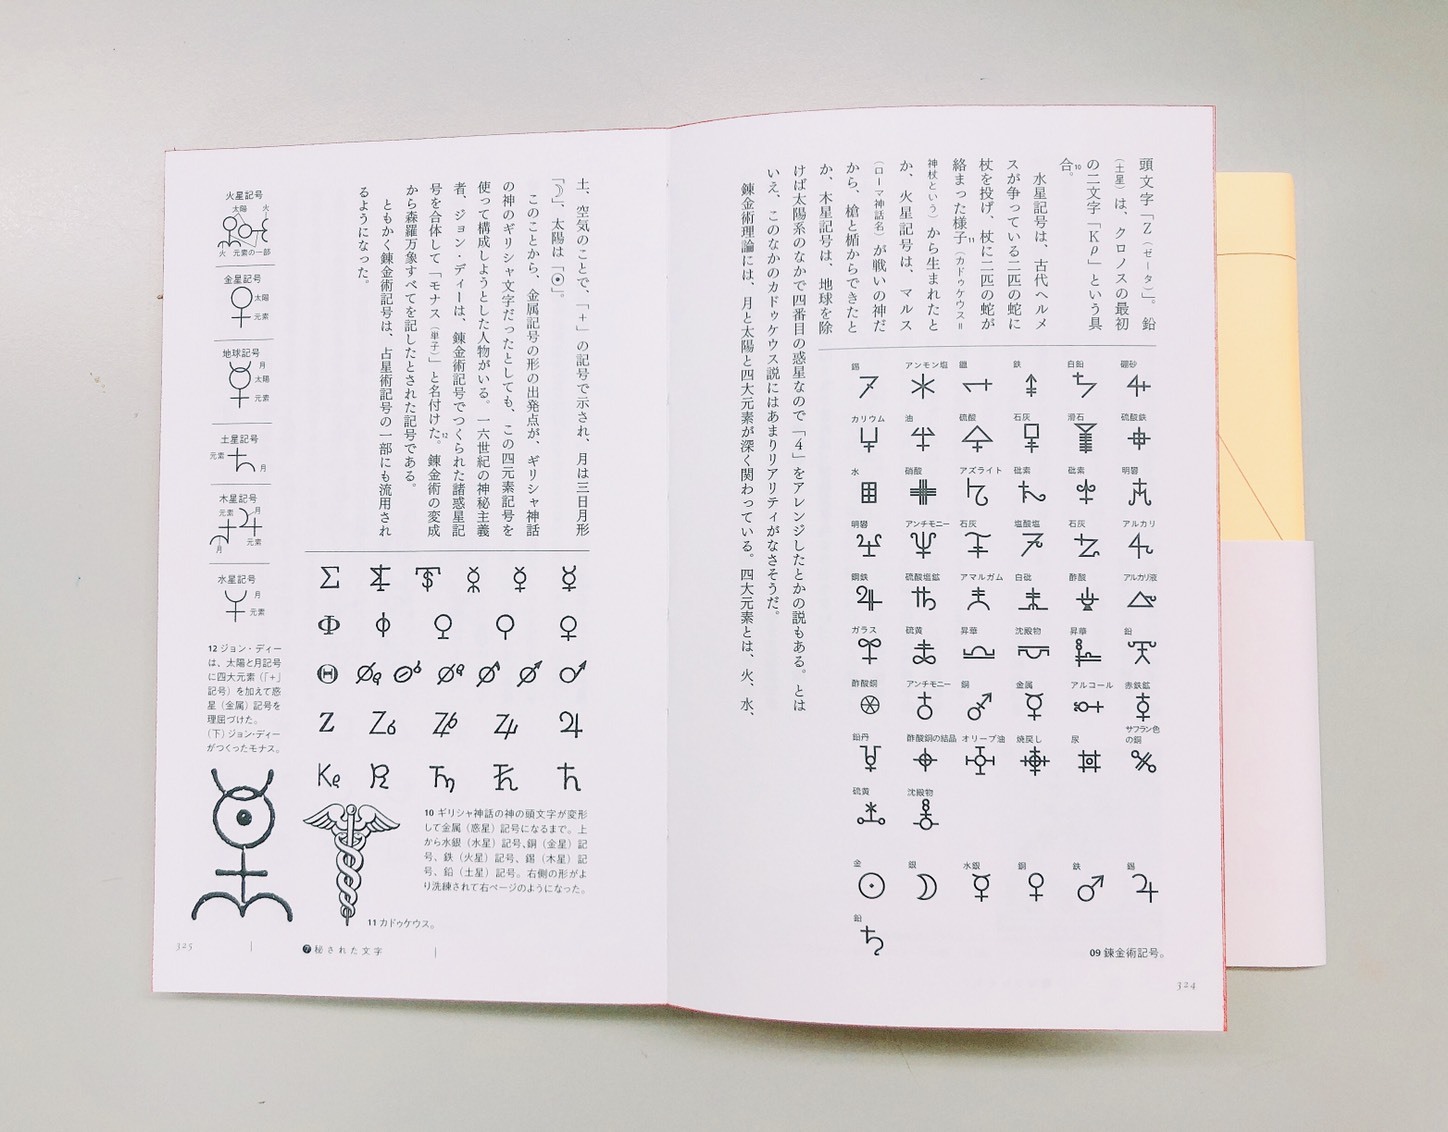 頭文字「Z（ゼータ）」。鉛
（土星）は、クロノスの最初
の二文字「Kρ」という具
合。10
水星記号は、古代ヘルメ
スが争っている二匹の蛇に
杖を投げ、杖に二匹の蛇が
絡まった様子11（カドゥケウス＝
神杖という）から生まれたと
か、火星記号は、マルス
（ローマ神話名）が戦いの神だ
から、槍と楯からできたと
か、木星記号は、地球を除
けば太陽系のなかで四番目の惑星なので「4」をアレンジしたとかの説もある。とは
いえ、このなかのカドゥケウス説にはあまりリアリティがなさそうだ。
錬金術理論には、月と太陽と四大元素が深く関わっている。四大元素とは、火、水、
錫 アンモン塩 鑞 鉄 白鉛 硼砂
カリウム 油 硫酸 石灰 滑石 硫酸鉄
水 硝酸 アズライト 砒素 砒素 明礬
明礬 アンチモニー 石灰 塩酸塩 石灰 アルカリ
鋼鉄 硫酸塩鉱 アマルガム 白砒 酢酸 アルカリ液
ガラス 硫黄 昇華 沈殿物 昇華 鉛
酢酸銅 アンチモニー 銅 金属 アルコール 赤鉄鉱
鉛丹 酢酸銅の結晶 オリーブ油 焼戻し 尿 サフラン色の銅
硫黄 沈殿物
金 銀 水銀 銅 鉄 錫
鉛
09 錬金術記号。
324
土、空気のことで、「+」の記号で示され、月は三日月形
「☽」、太陽は「☉」。
このことから、金属記号の形の出発点が、ギリシャ神話
の神のギリシャ文字だったとしても、この四元素記号を
使って構成しようとした人物がいる。一六世紀の神秘主義
者、ジョン・ディーは、錬金術記号でつくられた諸惑星記
号を合体して「モナス（単子）」と名付けた。12錬金術の変成
から森羅万象すべてを記したとされた記号である。
ともかく錬金術記号は、占星術記号の一部にも流用され
るようになった。
Σ
Φ
Θ
Z
Kρ
10 ギリシャ神話の神の頭文字が変形
して金属（惑星）記号になるまで。上
から水銀（水星）記号、銅（金星）記
号、鉄（火星）記号、錫（木星）記
号、鉛（土星）記号。右側の形がよ
り洗練されて右ページのようになった。
11 カドゥケウス。
火星記号
太陽 火
火 元素の一部
金星記号
太陽
元素
地球記号
月
太陽
元素
土星記号
元素
月
木星記号
元素 月
月 元素
水星記号
月
元素
12 ジョン・ディー
は、太陽と月記号
に四大元素（「+」
記号）を加えて惑
星（金属）記号を
理屈づけた。
（下）ジョン・ディー
がつくったモナス。
325
❼秘された文字